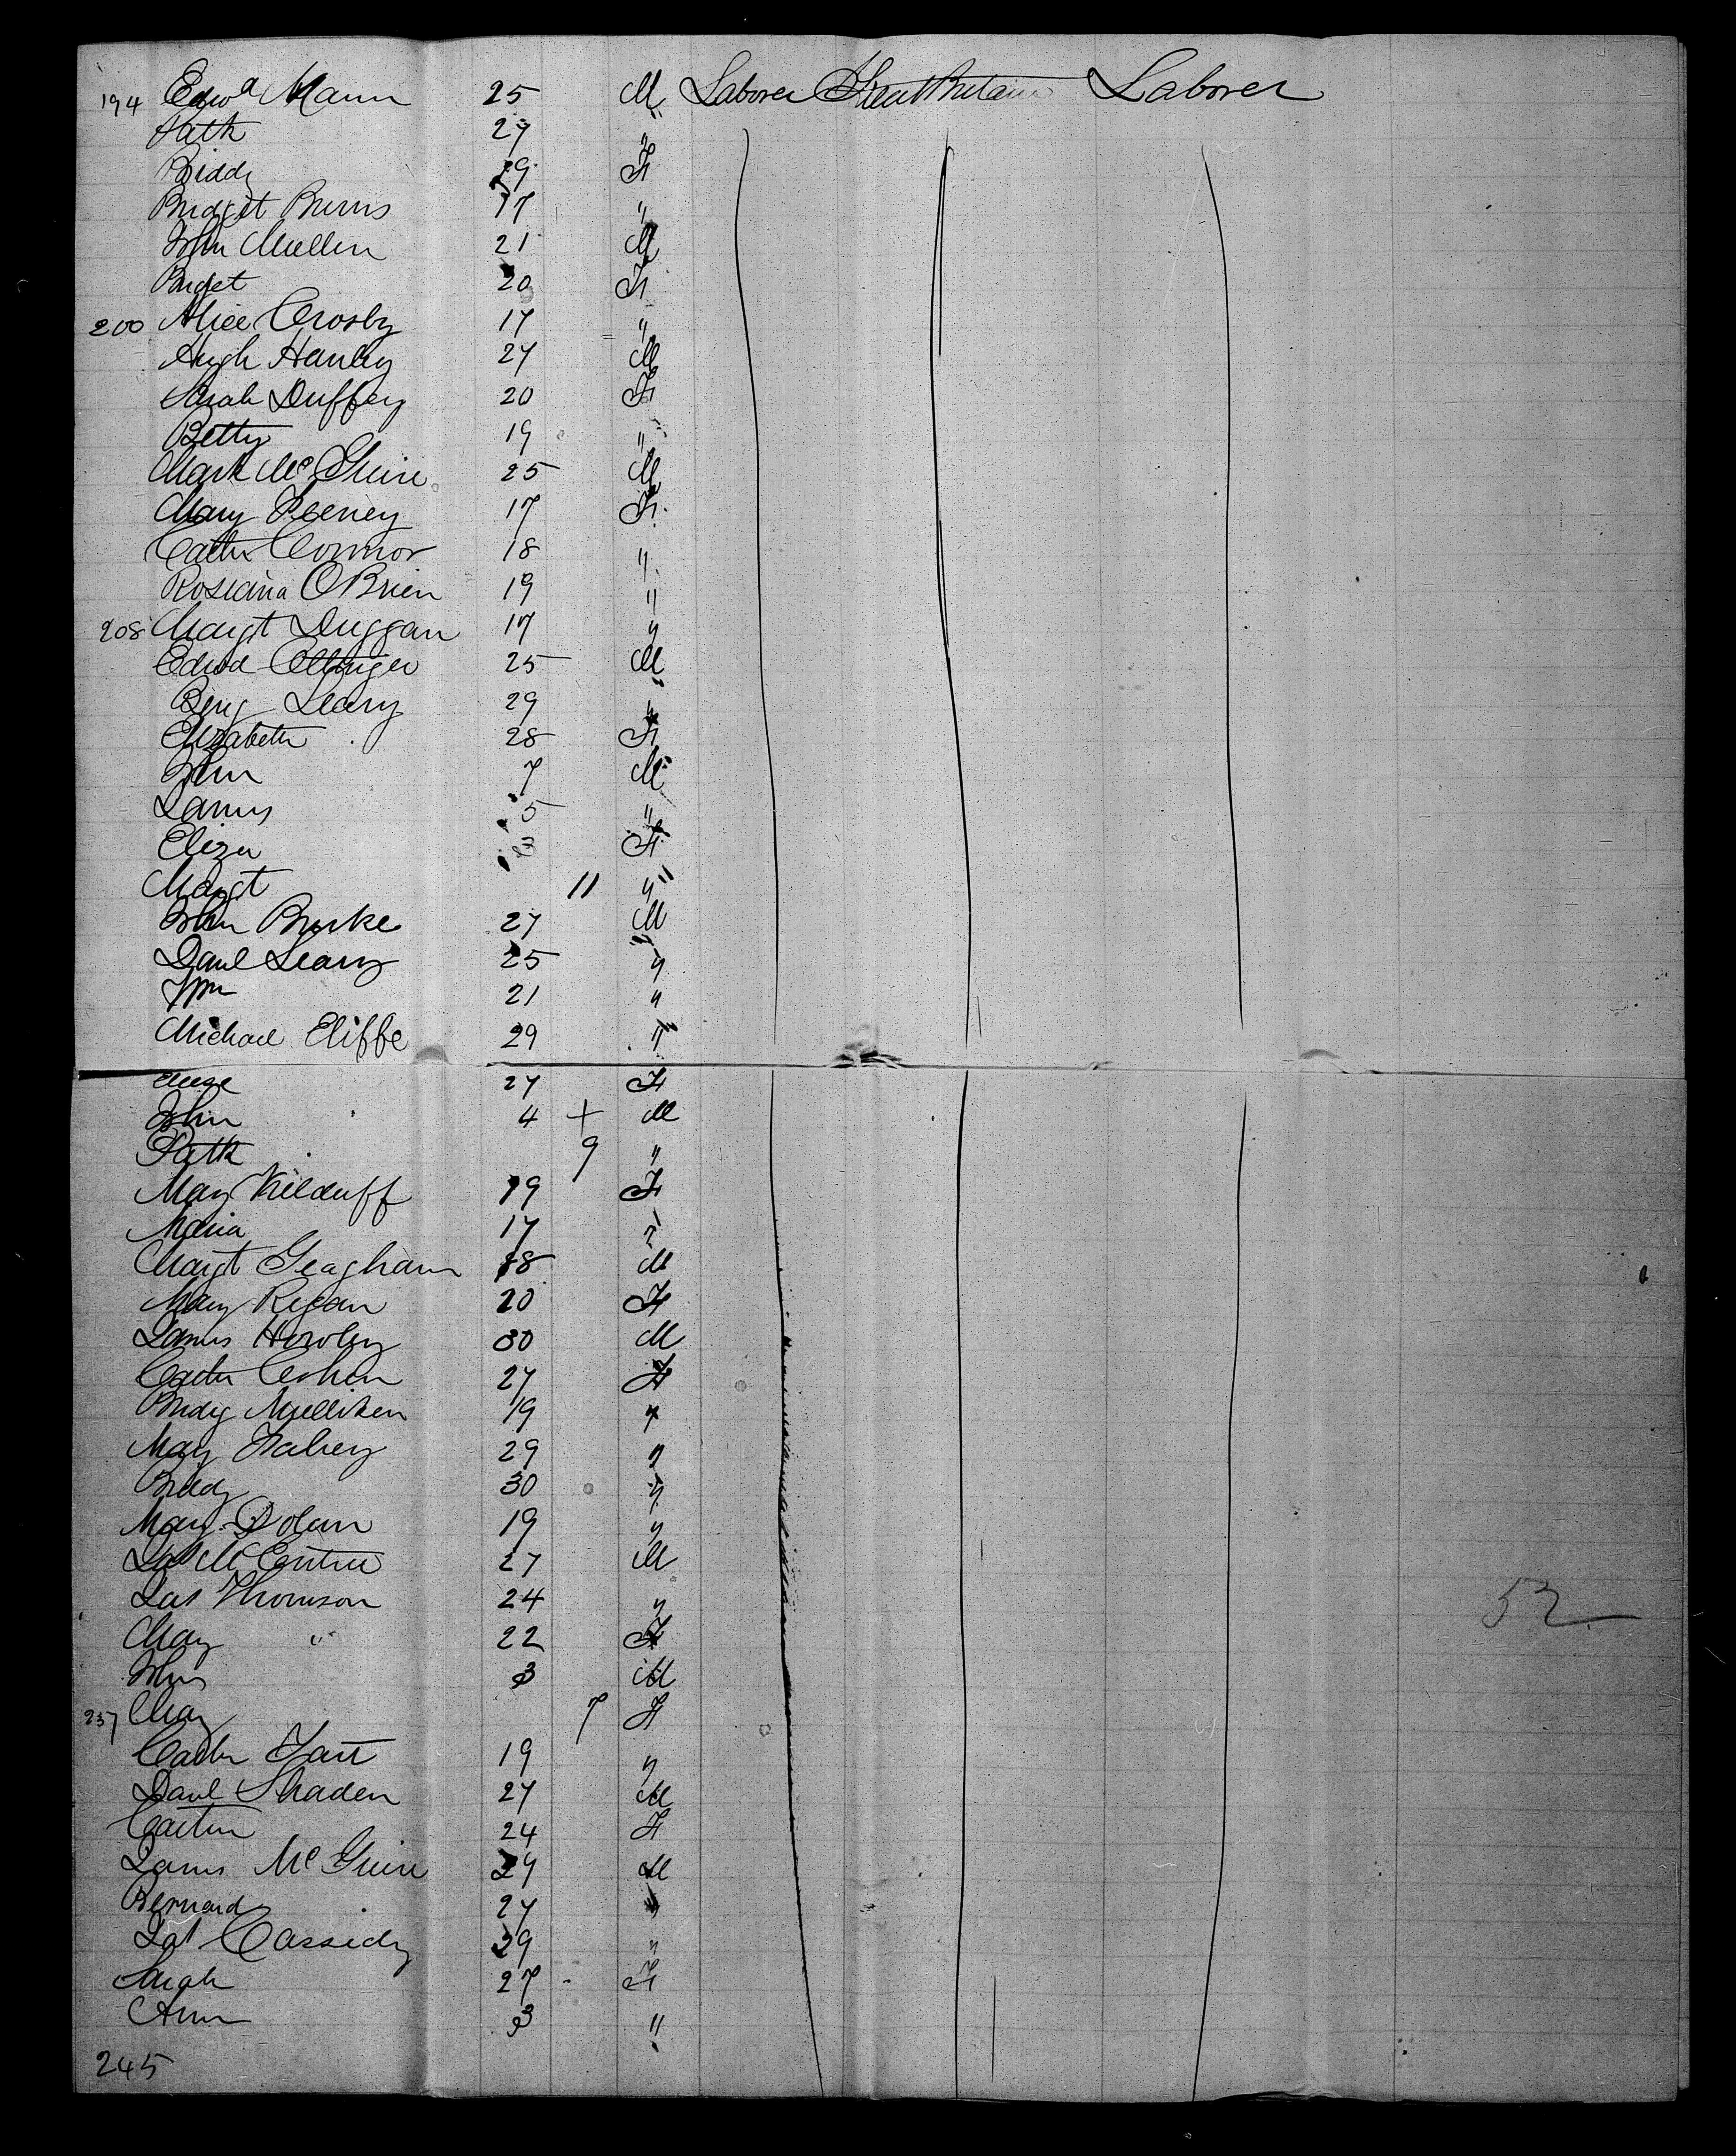 194 Edwd Mann 25 M Laborer Great Britain Laborer
Patk 27 "
Biddy 29 F
Bridget Burns 17 "
John Mullen 21 M
Briget 20 F
200 Alice Crosby 17 "
Hugh Hanley 27 M
Sarah Duffey 20 F
Betty 19 "
Mark McGuire 25 M
Mary Feeney 17 F
Cathe Connor 18 "
Roseana OBrien 19 "
208 Margt Duggan 17 "
Edwd 25 M
Benj Leary 29 "
Elizabeth 28 F
John 7 M
James 5 "
Eliza 3 F
Margt 11 "
John Burke 27 M
Danl Leary 25 "
Wm 21 "
Michael Cliffe 29 "
27 F
John 4 + M
Patk 9 "
Mary Kilduff 19 F
Maria 17 "
Margt Geaghan 18 M
Mary Regan 20 F
James Howley 30 M
Cathe 27 F
Bridg Mulliken 19 "
Mary Fahey 29 "
Biddy 30 "
Mary Dolan 19 "
Jas McEntire 27 M
Jas Thomson 24 "
Mary " 22 F
John 3 M
237 Mary 7 F
Cathe 19 "
Danl Shaden 27 M
Cathe 24 F
James McGuire 29 M
Bernard 27 "
Jas Cassidy 29 "
Sarah 27 F
Ann 3 "
245
52